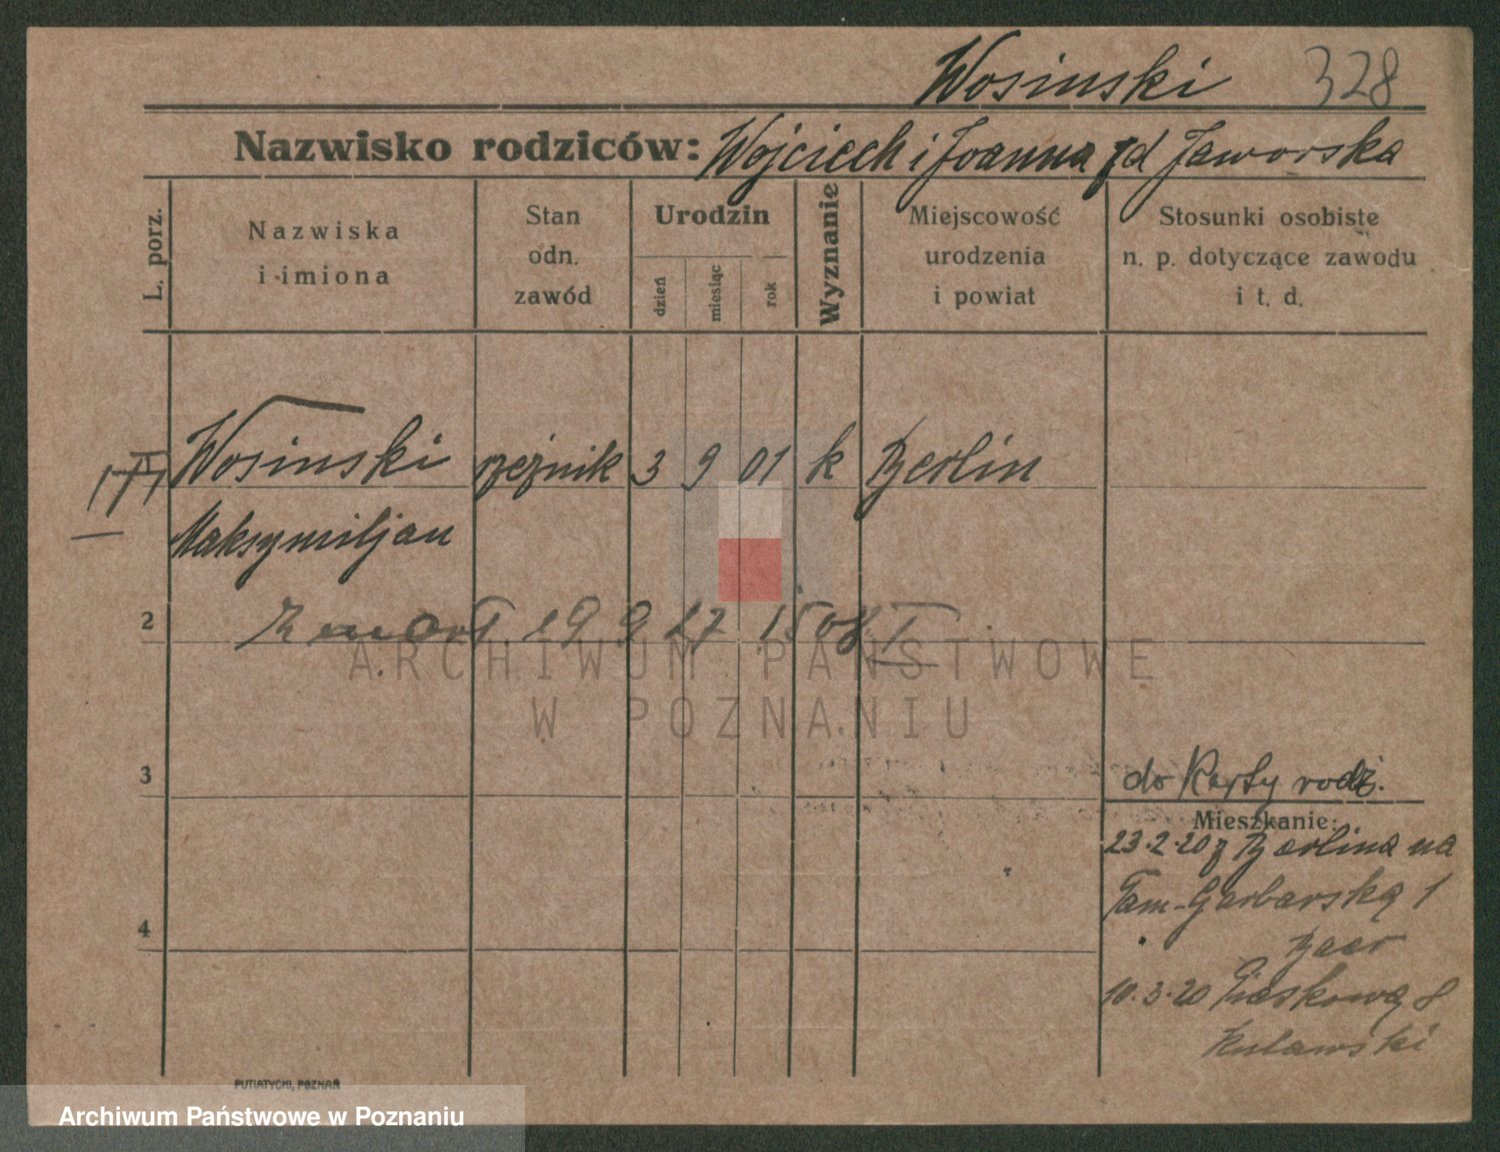 Wosinski 328
Nazwisko rodziców: Wojciech i Joanna zd Jaworska
L. porz.
Nazwiska
i imiona
Stan
odn.
zawód
Urodzin
dzień
miesiąc
rok
Wyznanie
Miejscowość
urodzenia
i powiat
Stosunki osobiste
n. p. dotyczące zawodu
i t. d.
Wosinski rzeźnik 3 9 01 k Berlin
Maksymiljan
2 Zmarł 19 9 27 1508 I
ARCHIWUM PAŃSTWOWE
W POZNANIU
3
do Karty rodz.
Mieszkanie:
23.2.20 z Berlina na
Tam-Garbarską 1
Baer
4
10.3.20 Piaskową 8
Kulawski
PUTIATYCKI, POZNAŃ
Archiwum Państwowe w Poznaniu